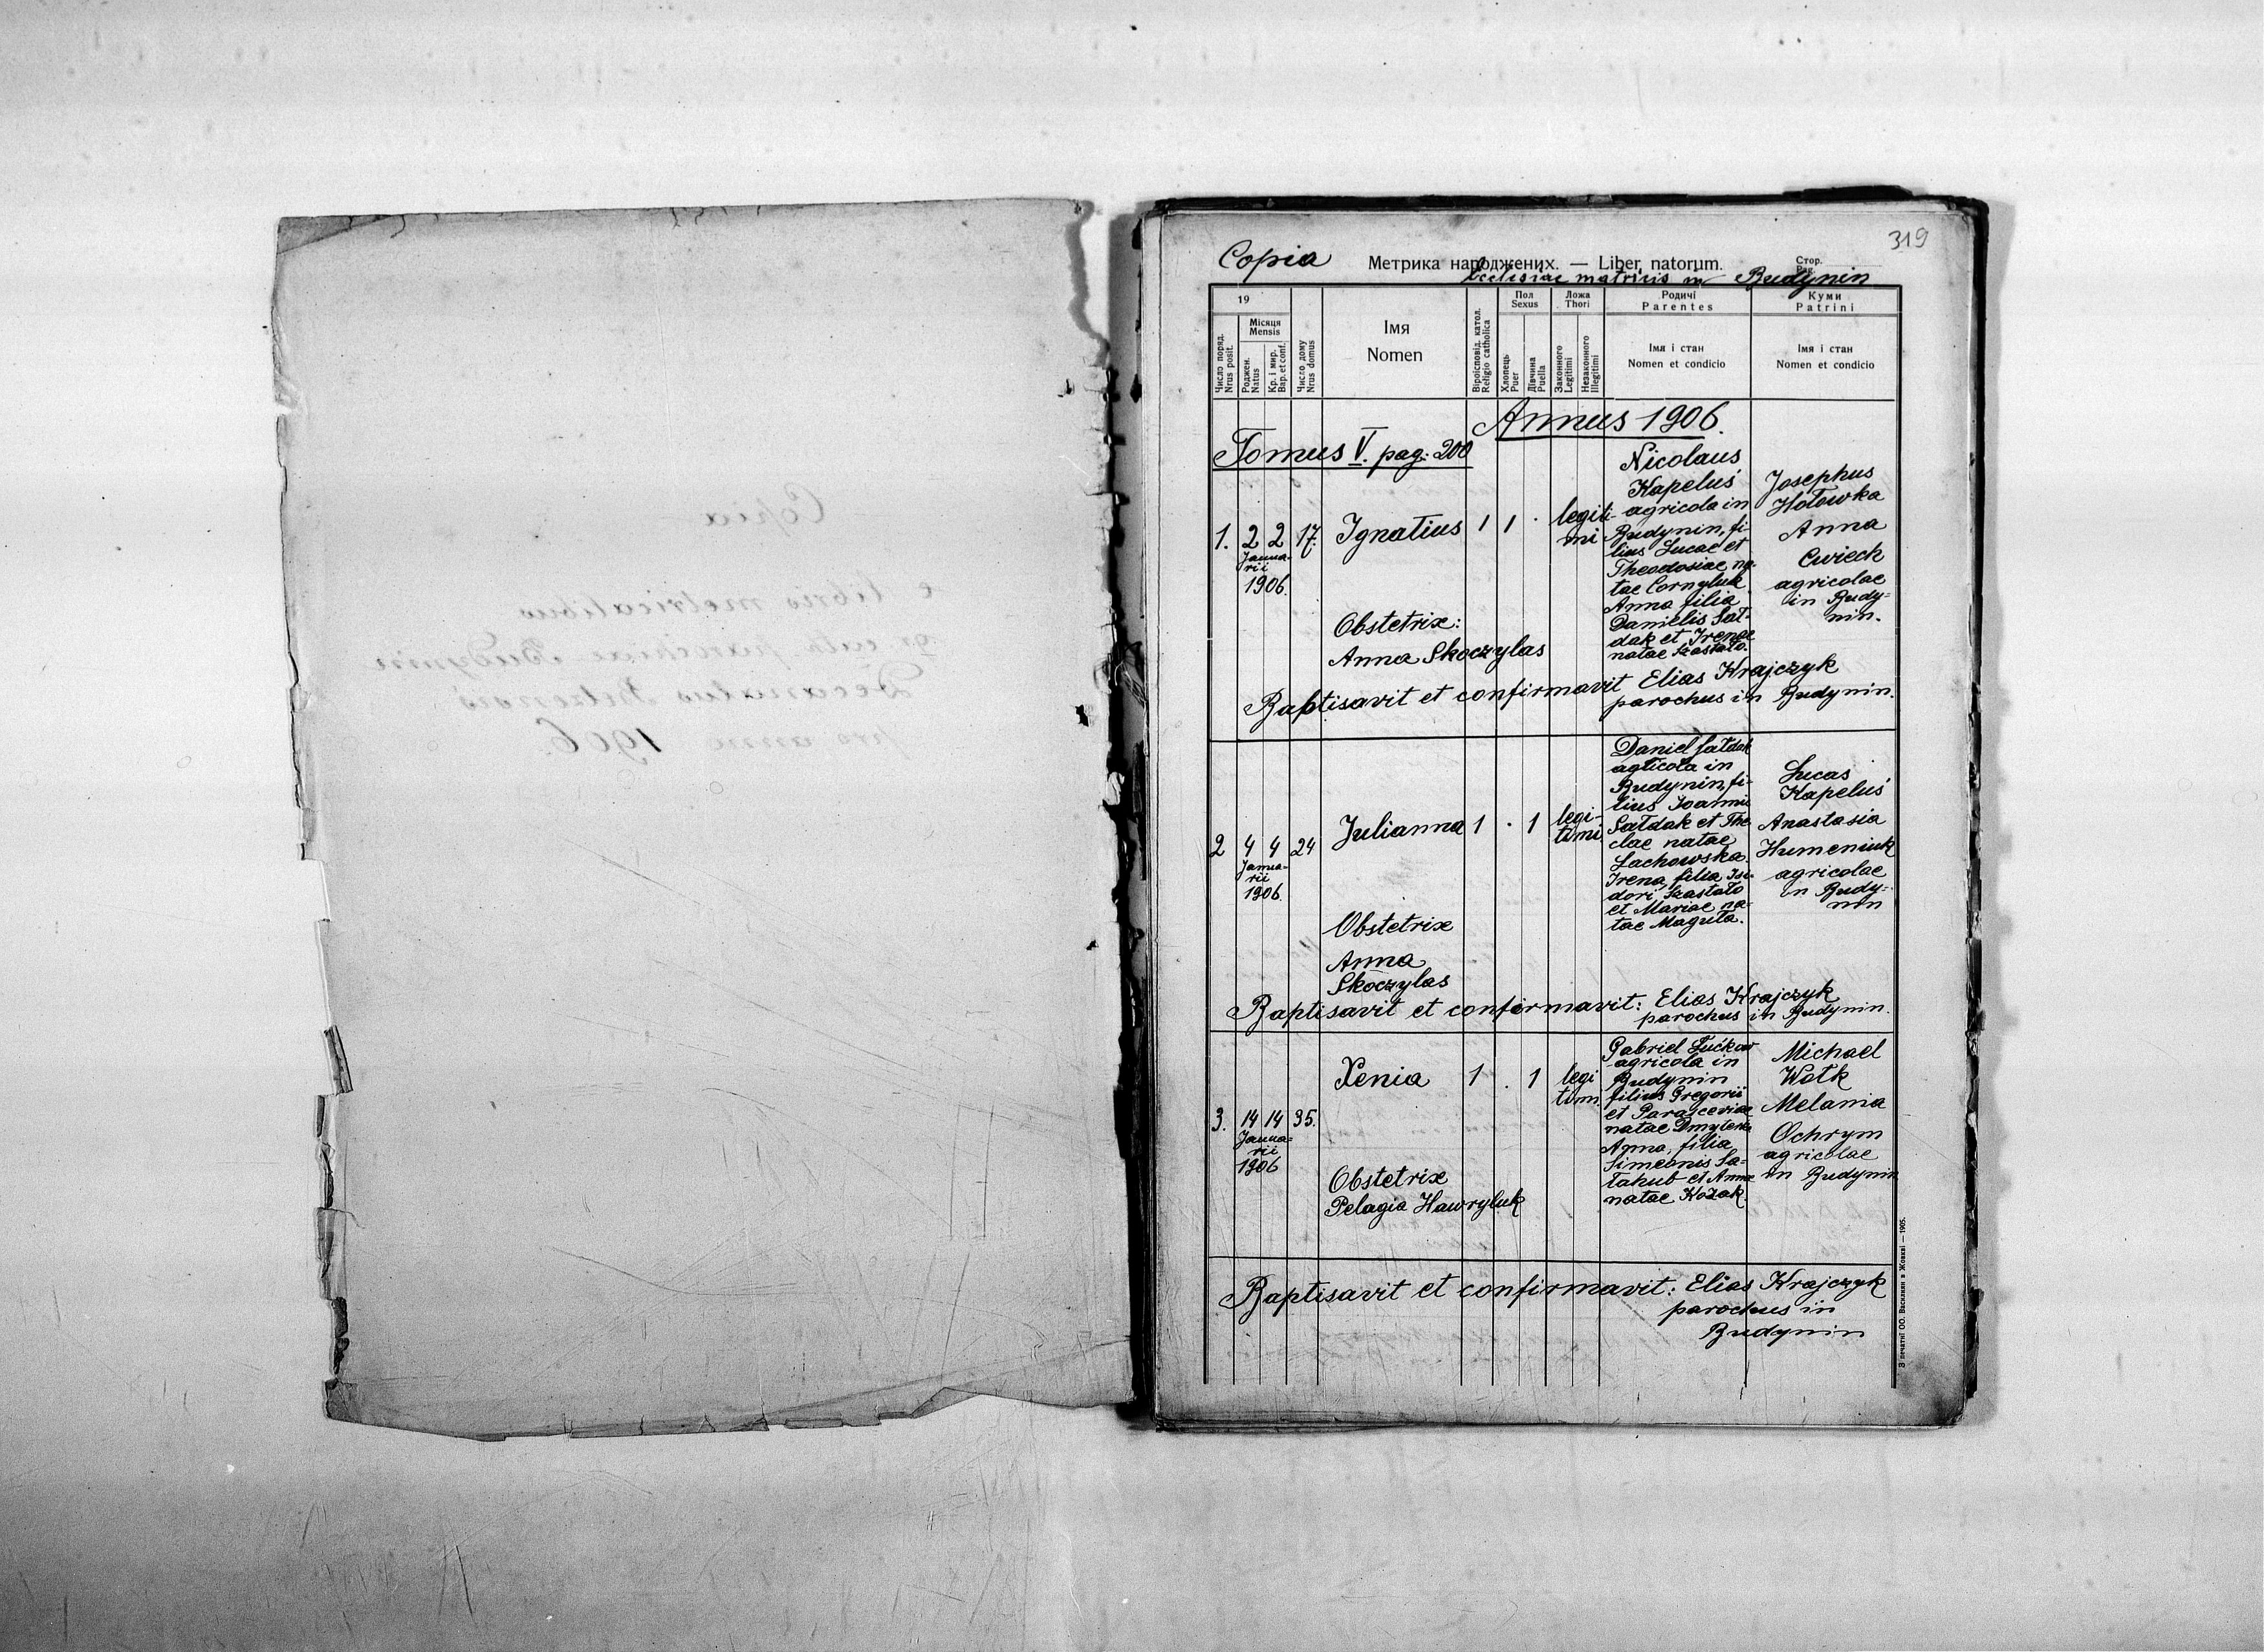 Copia
e libris metricalibus
gr. cath. parochiae Budynin
Decanatus Belzensis
pro anno 1906.
319
Copia Метрика народжених. — Liber natorum. Стор. Pag.
Ecclesiae matricis in Budynin
19
Число поряд.
Nrus posit.
Місяця
Mensis
Роджен.
Natus
Кр. і мир.
Bap. et conf.
Число дому
Nrus domus
Імя
Nomen
Віроісповід. катол.
Religio catholica
Пол
Sexus
Хлопець
Puer
Дівчина
Puella
Ложа
Thori
Законного
Legitimi
Незаконного
Illegitimi
Родичі
Parentes
Імя і стан
Nomen et condicio
Куми
Patrini
Імя і стан
Nomen et condicio
Annus 1906.
Tomus V. pag: 200
1. 2 2 17.
Janua-
rii
1906.
Ignatius
1 1 .
legiti-
mi
Obstetrix:
Anna Skoczylas
Nicolaus
Kapeluś
agricola in
Budynin, fi-
lius Lucae et
Theodosiae na-
tae Cornyluk
Anna filia
Danielis Sał-
dak et Irenae
natae Szastało.
Josephus
Hołowka
Anna
Cwiech
agricolae
in Budy=
nin.
Baptisavit et confirmavit Elias Krajczyk
parochus in Budynin.
2 4 4 24
Janua-
rii
1906.
Julianna
1 . 1
legi-
timi
Obstetrix
Anna
Skoczylas
Daniel Sałdak
agricola in
Budynin, fi-
lius Joannis
Sałdak et The
clae natae
Lachowska.
Irena, filia Isi-
dori Szastało
et Mariae na-
tae Maguta.
Lucas
Kapeluś
Anastasia
Humeniuk
agricolae
in Budy=
nin
Baptisavit et confirmavit: Elias Krajczyk
parochus in Budynin.
3. 14 14 35.
Janua=
rii
1906
Xenia
1 . 1
legi
timi.
Obstetrix
Pelagia Hawryluk
Gabriel
agricola in
Budynin
filius Gregorii
et Parasceviae
natae
Anna, filia
Simeonis Sa=
łahub et Annae
natae Kozak.
Michael
Wołk
Melania
Ochrym
agricolae
in Budynin
Baptisavit et confirmavit: Elias Krajczyk
parochus in
Budynin
З печатні ОО. Василиян в Жовкві — 1905.